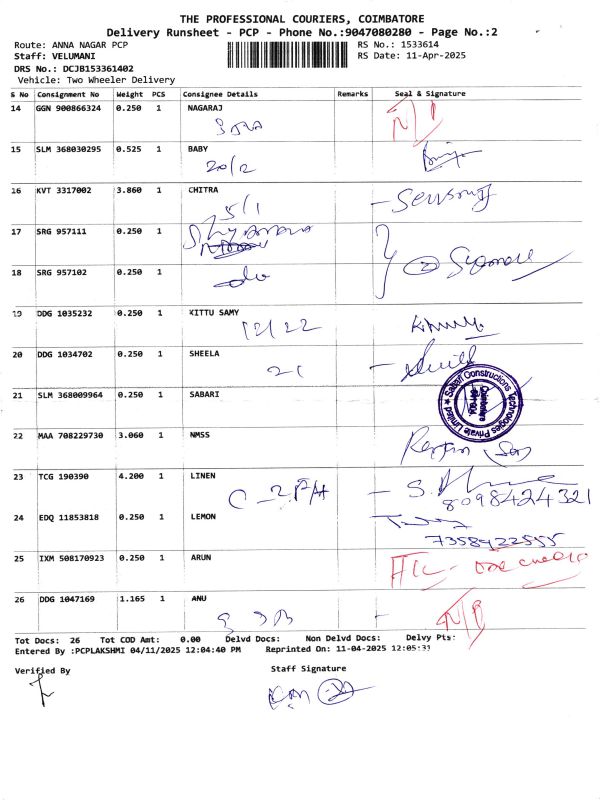 THE PROFESSIONAL COURIERS, COIMBATORE
Delivery Runsheet - PCP - Phone No.:9047080280 - Page No.:2
Route: ANNA NAGAR PCP RS No.: 1533614
Staff: VELUMANI RS Date: 11-Apr-2025
DRS No.: DCJB153361402
Vehicle: Two Wheeler Delivery
S No Consignment No Weight PCS Consignee Details Remarks Seal & Signature
14 GGN 900866324 0.250 1 NAGARAJ
15 SLM 368030295 0.525 1 BABY
20/2
16 KVT 3317002 3.860 1 CHITRA
5/1
17 SRG 957111 0.250 1
18 SRG 957102 0.250 1
19 DDG 1035232 0.250 1 KITTU SAMY
12/22
20 DDG 1034702 0.250 1 SHEELA
21
21 SLM 368009964 0.250 1 SABARI
Sabari Constructions Technologies Private Limited
22 MAA 708229730 3.060 1 NMSS
23 TCG 190390 4.200 1 LINEN
8098424321
24 EDQ 11853818 0.250 1 LEMON
7358922555
25 IXM 508170923 0.250 1 ARUN
26 DDG 1047169 1.165 1 ANU
Tot Docs: 26 Tot COD Amt: 0.00 Delvd Docs: Non Delvd Docs: Delvy Pts:
Entered By :PCPLAKSHMI 04/11/2025 12:04:40 PM Reprinted On: 11-04-2025 12:05:33
Verified By Staff Signature